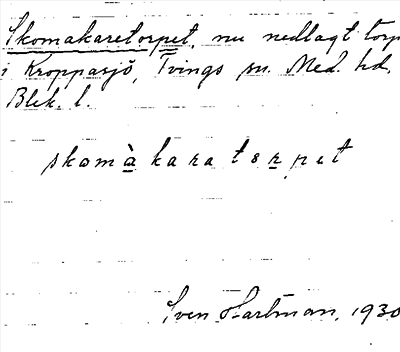 Skomakaretorpet, nu nedlagt torp
i Kroppasjö, Tvings sn. Med. hd.
Blek. l.
skomàkaratɘrpet
Sven Hartman, 1930